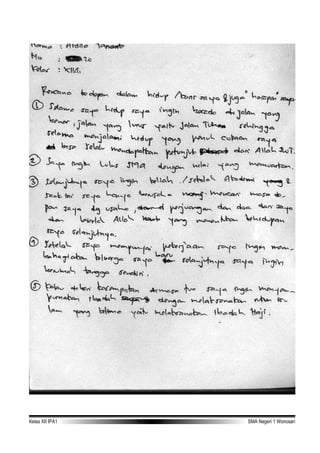 Nama : Ardito Tananto
No : 20
Kelas : XII/1
Rencana kedepan dalam hidup /karir saya & juga "harapan" saya
① Selama saya hidup saya ingin berada di jalan yang
benar, jalan yang lurus yaitu Jalan Tuhan sehingga
selama menjalani hidup yang penuh cobaan saya
bisa selalu mendapatkan petunjuk dari Allah SWT.
② Saya ingin lulus SMA dengan nilai yang memuaskan.
③ Selanjutnya saya ingin kuliah / sekolah Akademi
Saat ini saya hanya berusaha mencari masa de-
pan saya dg usaha perjuangan dan doa dari saya
dan Allah yang menentukan kehidupan
saya selanjutnya.
④ Setelah saya mempunyai pekerjaan saya ingin mem-
bahagiakan keluarga saya baru selanjutnya saya ingin
berumah tangga sendiri.
⑤ Kalau diberi kesempatan dimasa tua saya ingin menyem-
purnakan Ibadah dengan melaksanakan rukun Is-
lam yang kelima yaitu melaksanakan Ibadah Haji.
Kelas XII IPA1 SMA Negeri 1 Wonosari